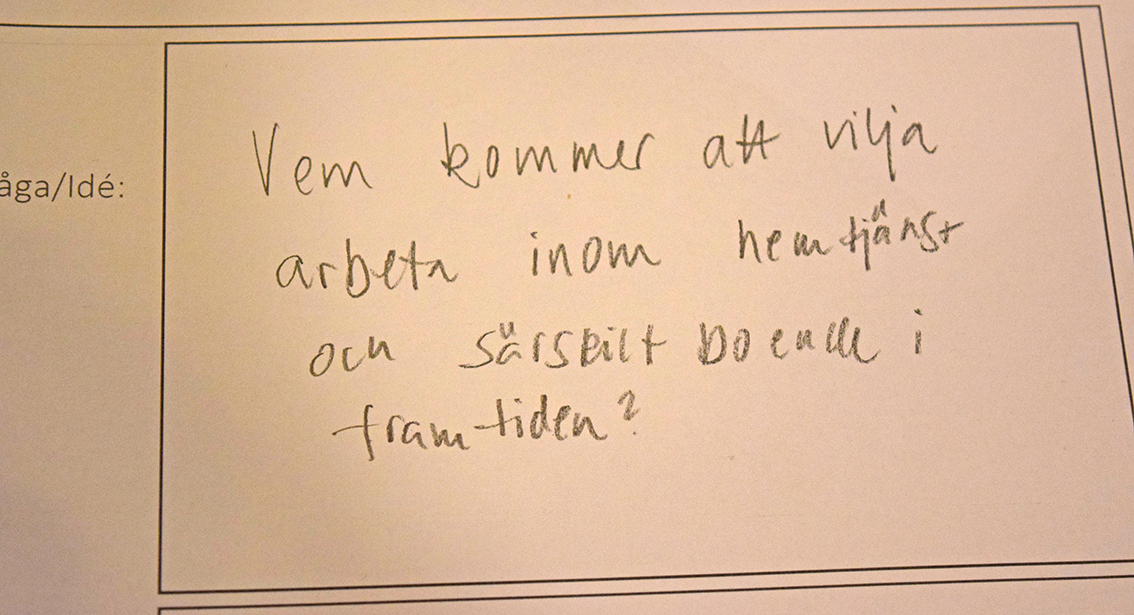 åga/Idé:
Vem kommer att vilja
arbeta inom hemtjänst
och särskilt boende i
framtiden?